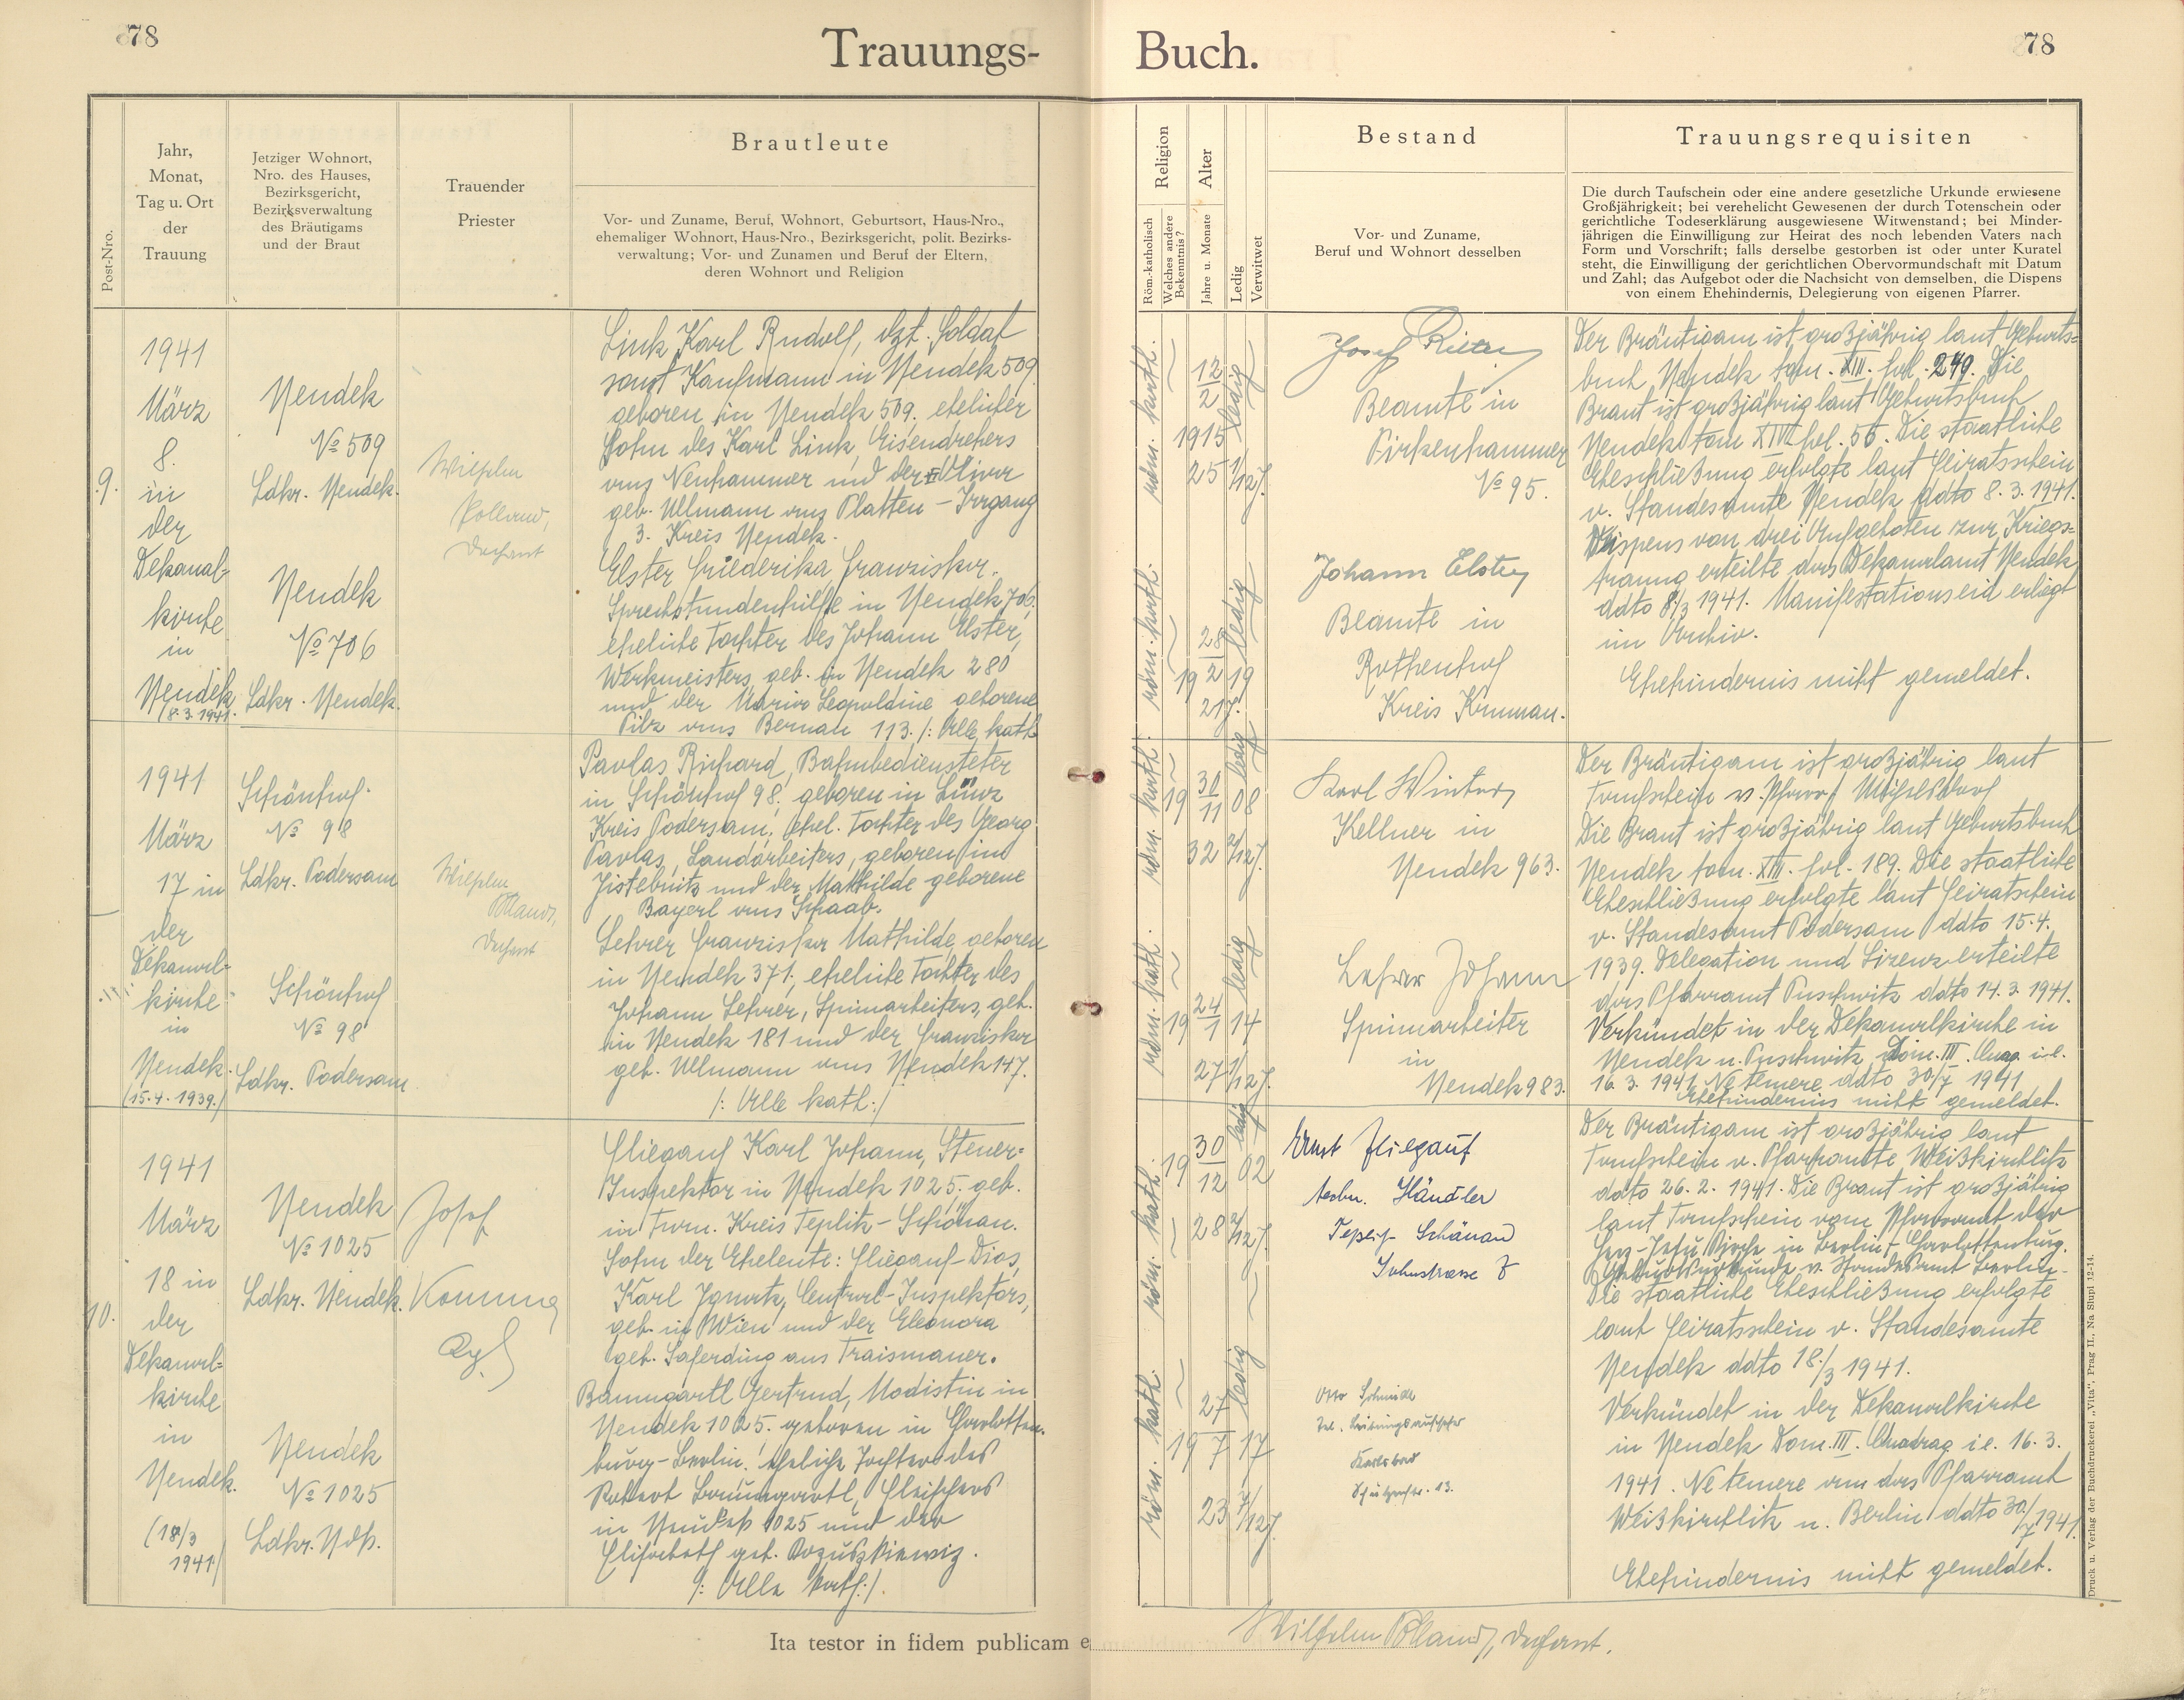 78
Trauungs-
Buch.
78
Post-Nro.
Jahr,
Monat,
Tag u. Ort
der
Trauung
Jetziger Wohnort,
Nro. des Hauses,
Bezirksgericht,
Bezirksverwaltung
des Bräutigams
und der Braut
Trauender
Priester
Brautleute
Vor- und Zuname, Beruf, Wohnort, Geburtsort, Haus-Nro.,
ehemaliger Wohnort, Haus-Nro., Bezirksgericht, polit. Bezirks-
verwaltung; Vor- und Zunamen und Beruf der Eltern,
deren Wohnort und Religion
Religion
Röm.-katholisch
Welches andere
Bekenntnis?
Alter
Jahre u. Monate
Ledig
Verwitwet
Bestand
Vor- und Zuname,
Beruf und Wohnort desselben
Trauungsrequisiten
Die durch Taufschein oder eine andere gesetzliche Urkunde erwiesene
Großjährigkeit; bei verehelicht Gewesenen der durch Totenschein oder
gerichtliche Todeserklärung ausgewiesene Witwenstand; bei Minder-
jährigen die Einwilligung zur Heirat des noch lebenden Vaters nach
Form und Vorschrift; falls derselbe gestorben ist oder unter Kuratel
steht, die Einwilligung der gerichtlichen Obervormundschaft mit Datum
und Zahl; das Aufgebot oder die Nachsicht von demselben, die Dispens
von einem Ehehindernis, Delegierung von eigenen Pfarrer.
9.
1941
März
8.
in
der
Dekanal-
kirche
in
Neudek
(8.3.1941.
Neudek
No 509
Ldkr. Neudek.
Neudek
No 706
Ldkr. Neudek.
Wilhelm
Polland,
Dechant
Link Karl Rudolf, dzt. Soldat
sonst Kaufmann in Neudek 509
geboren in Neudek 509. ehelicher
Sohn des Karl Link, Eisendrehers
aus Neuhammer und der Olivia
geb. Ullmann aus Platten - Irrgang
3. Kreis Neudek.
Elster Friederika Franziska.
Sprechstundenhilfe in Neudek 706,
eheliche Tochter des Johann Elster,
Werkmeisters, geb. in Neudek 280
und der Maria Leopoldine geborene
Pilz aus Bernau 113. /: Alle kath
röm. kath.
12
2
1915
25 1/12 J.
ledig
röm. kath.
28
19 2 19
21 J.
ledig
Josef
Beamte in
Pirkenhammer
No 95.
Johann Elster
Beamte in
Rothenhof
Kreis Krumau.
Der Bräutigam ist großjährig laut Geburts=
buch Neudek tom. XIII. fol. 249. Die
Braut ist großjährig laut Geburtsbuch
Neudek tom XIV fol. 55. Die staatliche
Eheschließung erfolgte laut Heiratsschein
v. Standesamte Neudek ddto 8.3.1941.
Dispens von drei Aufgeboten zur Kriegs=
trauung erteilte das Dekanalamt Neudek
ddto 8./3 1941. Manifestationseid erliegt
im Archiv.
Ehehindernis nicht gemeldet.
1941
März
17 in
der
Dekanal-
kirche
in
Neudek.
(15.4.1939.)
Schönhof
No 98
Ldkr. Podersam
Schönhof
No 98
Ldkr. Podersam
Wilhelm
Polland,
Dechant
Pavlas Richard, Bahnbediensteter
in Schönhof 98. geboren in
Kreis Podersam, ehel. Tochter des Georg
Pavlas, Landarbeiters, geboren in
Jistebnitz und der Mathilde geborene
Bayerl aus Schaab.
Lehrer Franziska Mathilde, geboren
in Neudek 371, eheliche Tochter des
Johann Lehrer, Spinnarbeiters, geb.
in Neudek 181 und der Franziska
geb. Ullmann aus Neudek 147.
/: Alle kath:/
röm. kath.
30
19 11 08
32 2/12 J.
ledig
röm. kath.
24
19 1 14
27 1/12 J.
ledig
Karl Winter
Kellner in
Neudek 963.
Lehrer Johann
Spinnarbeiter
in
Neudek 983.
Der Bräutigam ist großjährig laut
Taufschein v. Pfarramt
Die Braut ist großjährig laut Geburtsbuch
Neudek tom. XIII. fol. 189. Die staatliche
Eheschließung erfolgte laut Heiratsschein
v. Standesamt Podersam ddto 15.4.
1939. Delegation und Lizenz erteilte
das Pfarramt Puschwitz ddto 14.3.1941.
Verkündet in der Dekanalkirche in
Neudek u. Puschwitz Dom. III. Quad. i.e.
16.3.1941 Ne temere ddto 30/7 1941
Ehehindernis nicht gemeldet.
10.
1941
März
18 in
der
Dekanal=
kirche
in
Neudek.
(18/3
1941)
Neudek
No 1025
Ldkr. Neudek.
Neudek
No 1025
Ldkr. Ndk.
Josef
Fliegauf Karl Johann, Steuer=
Inspektor in Neudek 1025. geb.
in Turn. Kreis Teplitz - Schönau.
Sohn der Eheleute: Fliegauf-Dias,
Karl Ignatz, Central-Inspektors,
geb. in Wien und der Eleonora
geb. Saferding aus Traismauer.
Baumgartl Gertrud, Modistin in
Neudek 1025. geboren in Charlotten-
burg-Berlin. eheliche Tochter des
Robert Baumgartl, Fleischers
in Neudek 1025 und der
Elisabeth geb.
/: Alle kath:/.
röm. kath.
30
19 12 02
28 2/12 J.
ledig
röm. kath.
27
19 7 17
23 7/12 J.
ledig
Ernst Fliegauf
techn. Händler
Teplitz Schönau
Otto Schmidt
Karlsbad
Der Bräutigam ist großjährig laut
Taufschein v. Pfarramte Weißkirchlitz
ddto 26.2.1941. Die Braut ist großjährig
laut Taufschein vom Pfarramt der
Herz-Jesu Kirche in Berlin-Charlottenburg.
Geburtsurkunde v. Standesamt Berlin.
Die staatliche Eheschließung erfolgte
laut Heiratsschein v. Standesamte
Neudek ddto 18./3 1941.
Verkündet in der Dekanalkirche
in Neudek Dom. III. Quadrag. i.e. 16.3.
1941. Ne temere an das Pfarramt
Weißkirchlitz u. Berlin ddto 30./7 1941.
Ehehindernis nicht gemeldet.
Ita testor in fidem publicam e
Wilhelm Polland, Dechant.
Druck u. Verlag der Buchdruckerei „Vita“, Prag II., Na Slupi 12-14.